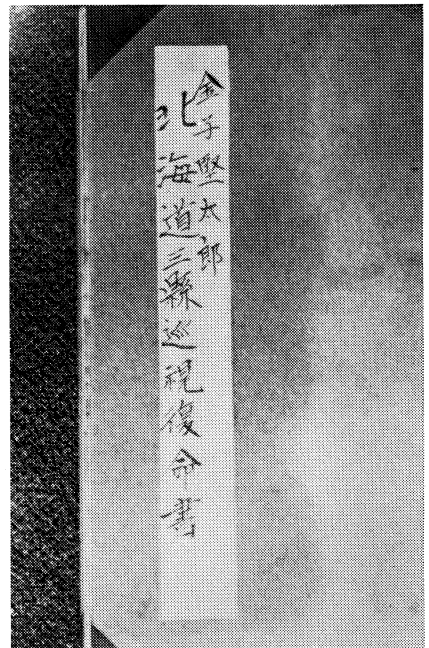 金子堅太郎
北海道三縣巡視復命書